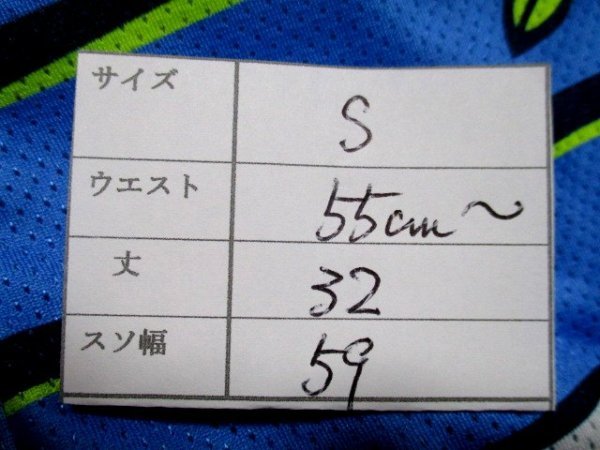 サイズ S
ウエスト 55cm〜
丈 32
スソ幅 59